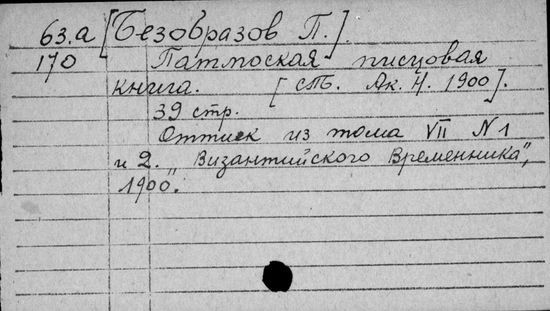 63.а [Безобразов П.].
170 Патмоская писцовая
книга. [СПб. Ак. Н. 1900].
39 стр.
Оттиск из тома VII N 1
и 2. „Византийского Временника",
1900.